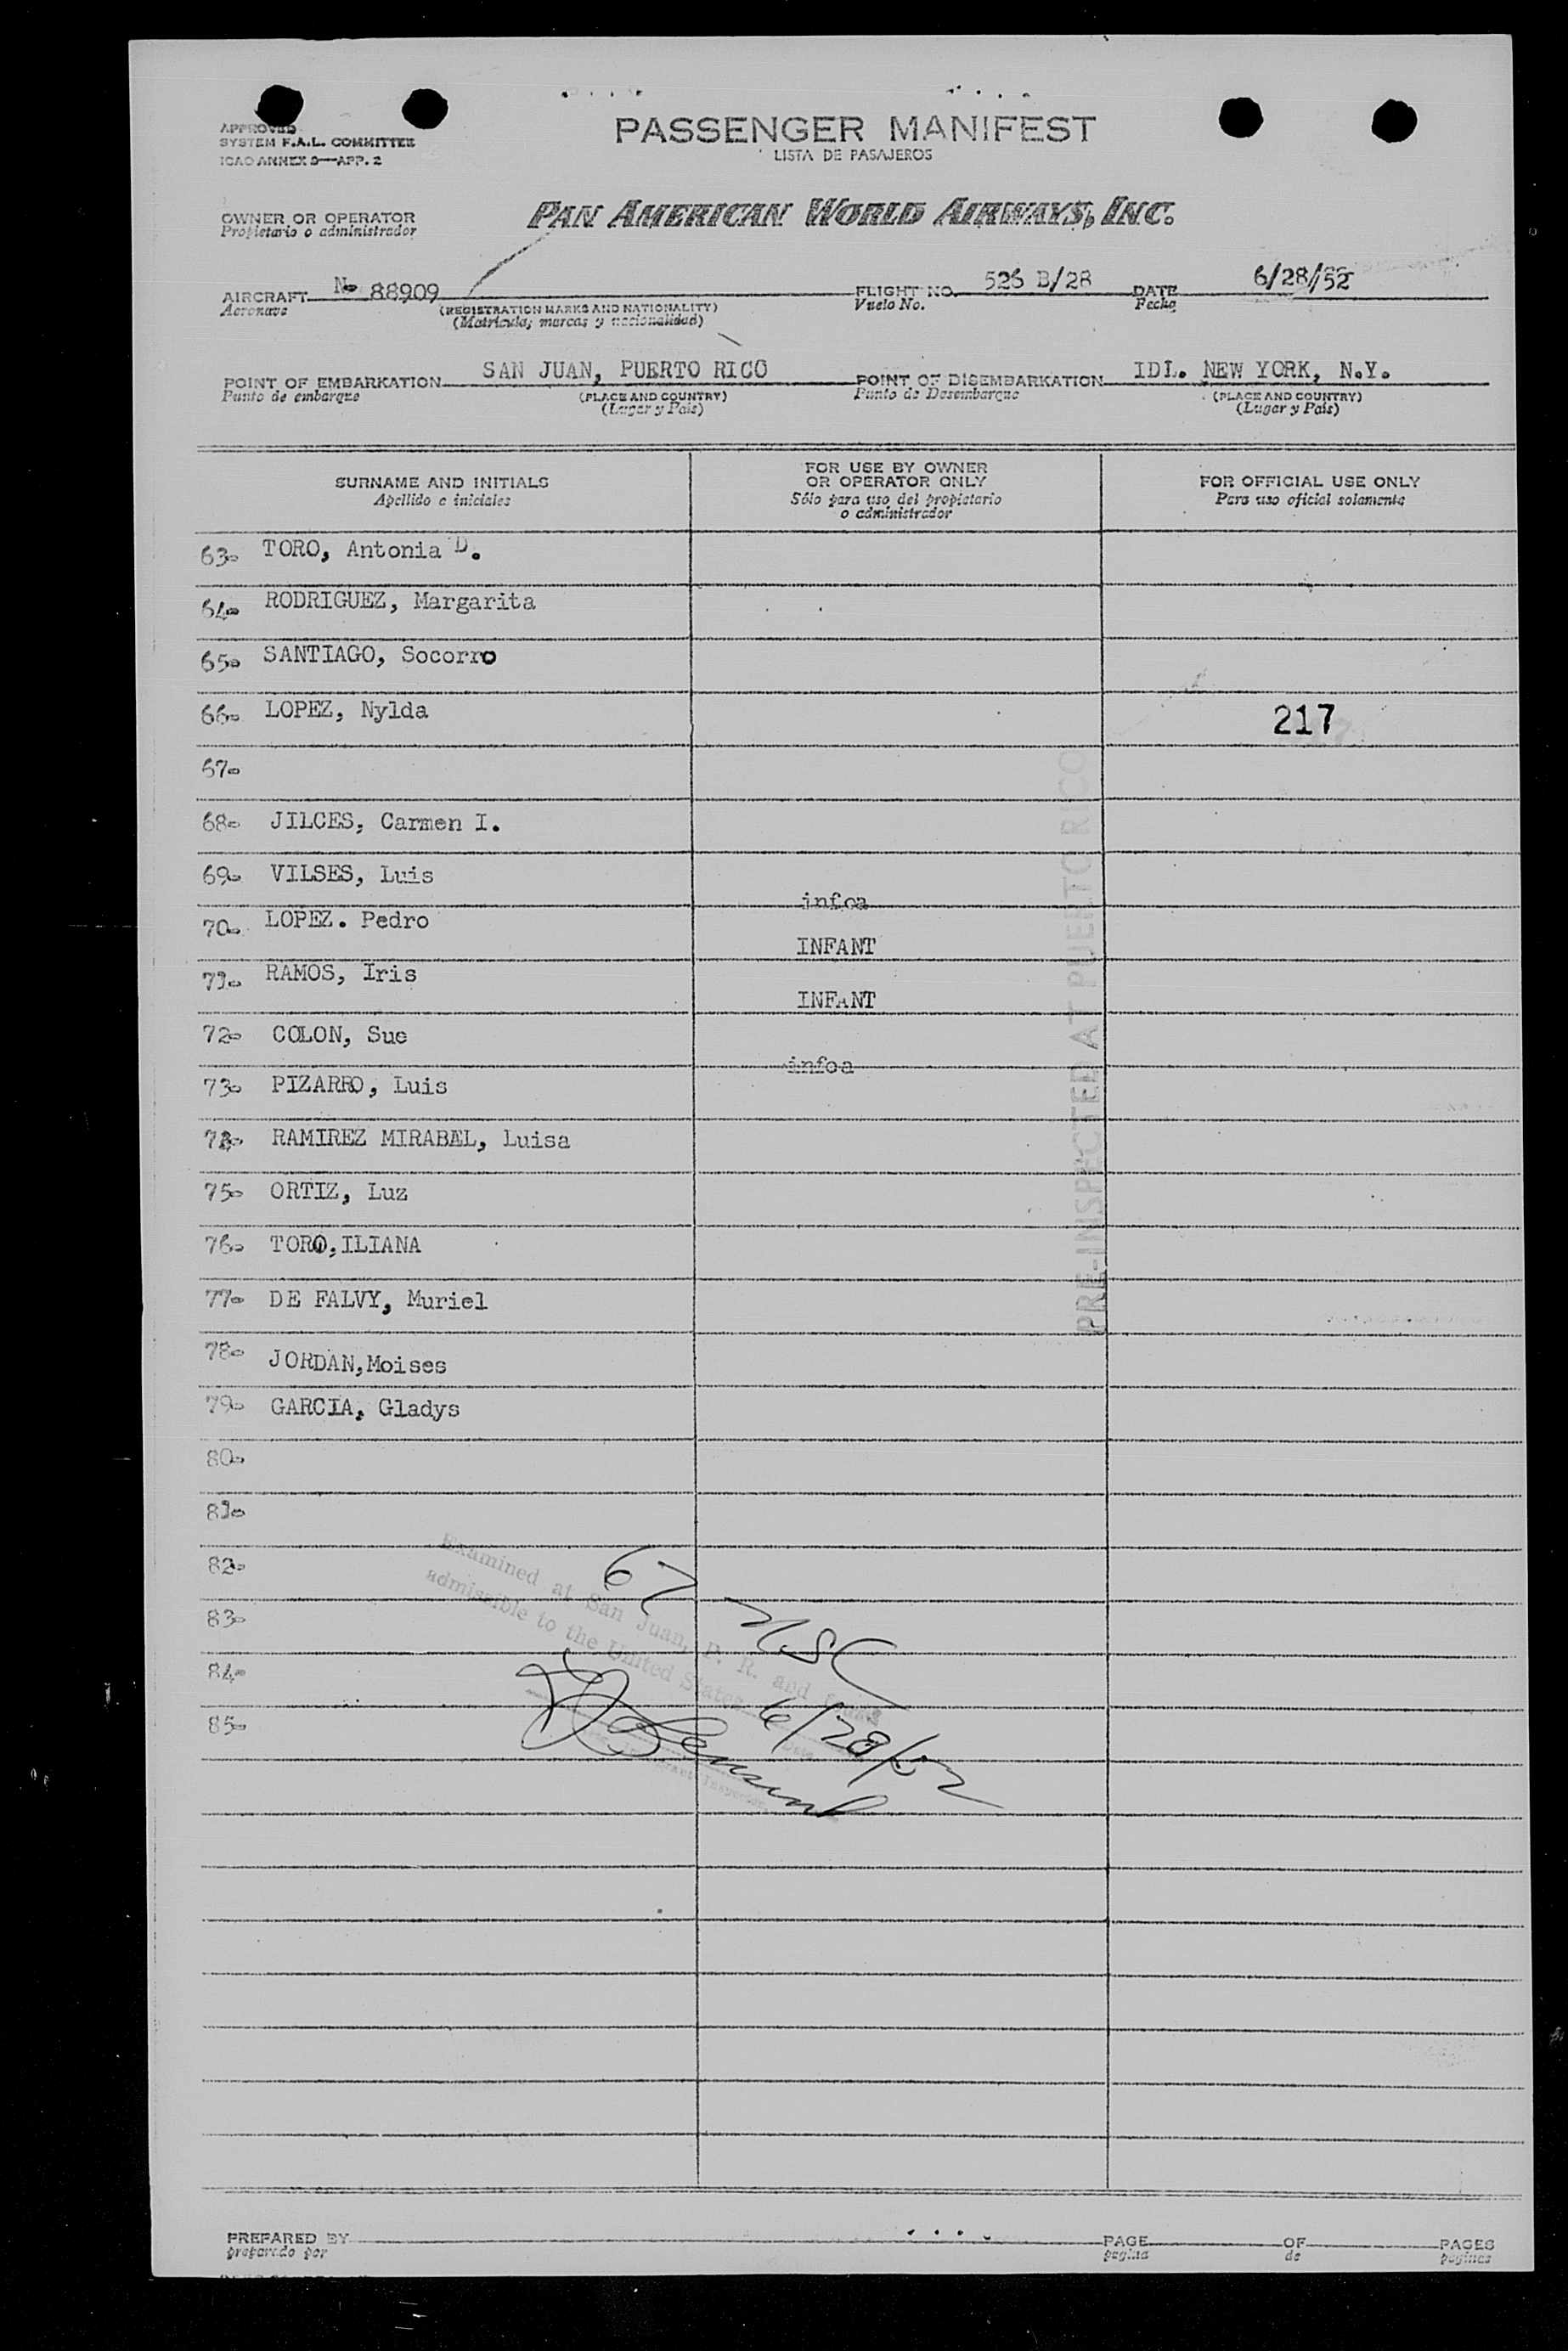 APPROVED
SYSTEM F.A.L. COMMITTEE
ICAO ANNEX 9—APP. 2
PASSENGER MANIFEST
LISTA DE PASAJEROS
OWNER OR OPERATOR
Propietario o administrador
PAN AMERICAN WORLD AIRWAYS, INC.
AIRCRAFT No 88909 FLIGHT NO. 526 B/28 DATE 6/28/52
Aeronave (REGISTRATION MARKS AND NATIONALITY) Vuelo No. Fecha
(Matricula, marcas y nacionalidad)
POINT OF EMBARKATION SAN JUAN, PUERTO RICO POINT OF DISEMBARKATION IDL. NEW YORK, N.Y.
Punto de embarque (PLACE AND COUNTRY) Punto de Desembarque (PLACE AND COUNTRY)
(Lugar y País) (Lugar y País)
SURNAME AND INITIALS FOR USE BY OWNER OR OPERATOR ONLY FOR OFFICIAL USE ONLY
Apellido e iniciales Sólo para uso del propietario o administrador Para uso oficial solamente
63- TORO, Antonia D.
64- RODRIGUEZ, Margarita
65- SANTIAGO, Socorro
66- LOPEZ, Nylda 217
67-
68- JILCES, Carmen I.
69- VILSES, Luis
infoa
70- LOPEZ. Pedro
INFANT
71- RAMOS, Iris
INFANT
72- COLON, Sue
infoa
73- PIZARRO, Luis
74- RAMIREZ MIRABAL, Luisa
75- ORTIZ, Luz
76- TORO, ILIANA
77- DE FALVY, Muriel
78- JORDAN, Moises
79- GARCIA, Gladys
80-
81-
82-
83-
84-
85-
PRE-INSPECTED AT PUERTO RICO
67 USC
Examined at San Juan, P. R. and found
admissible to the United States
6/28/52
PREPARED BY PAGE OF PAGES
preparado por pagina de paginas